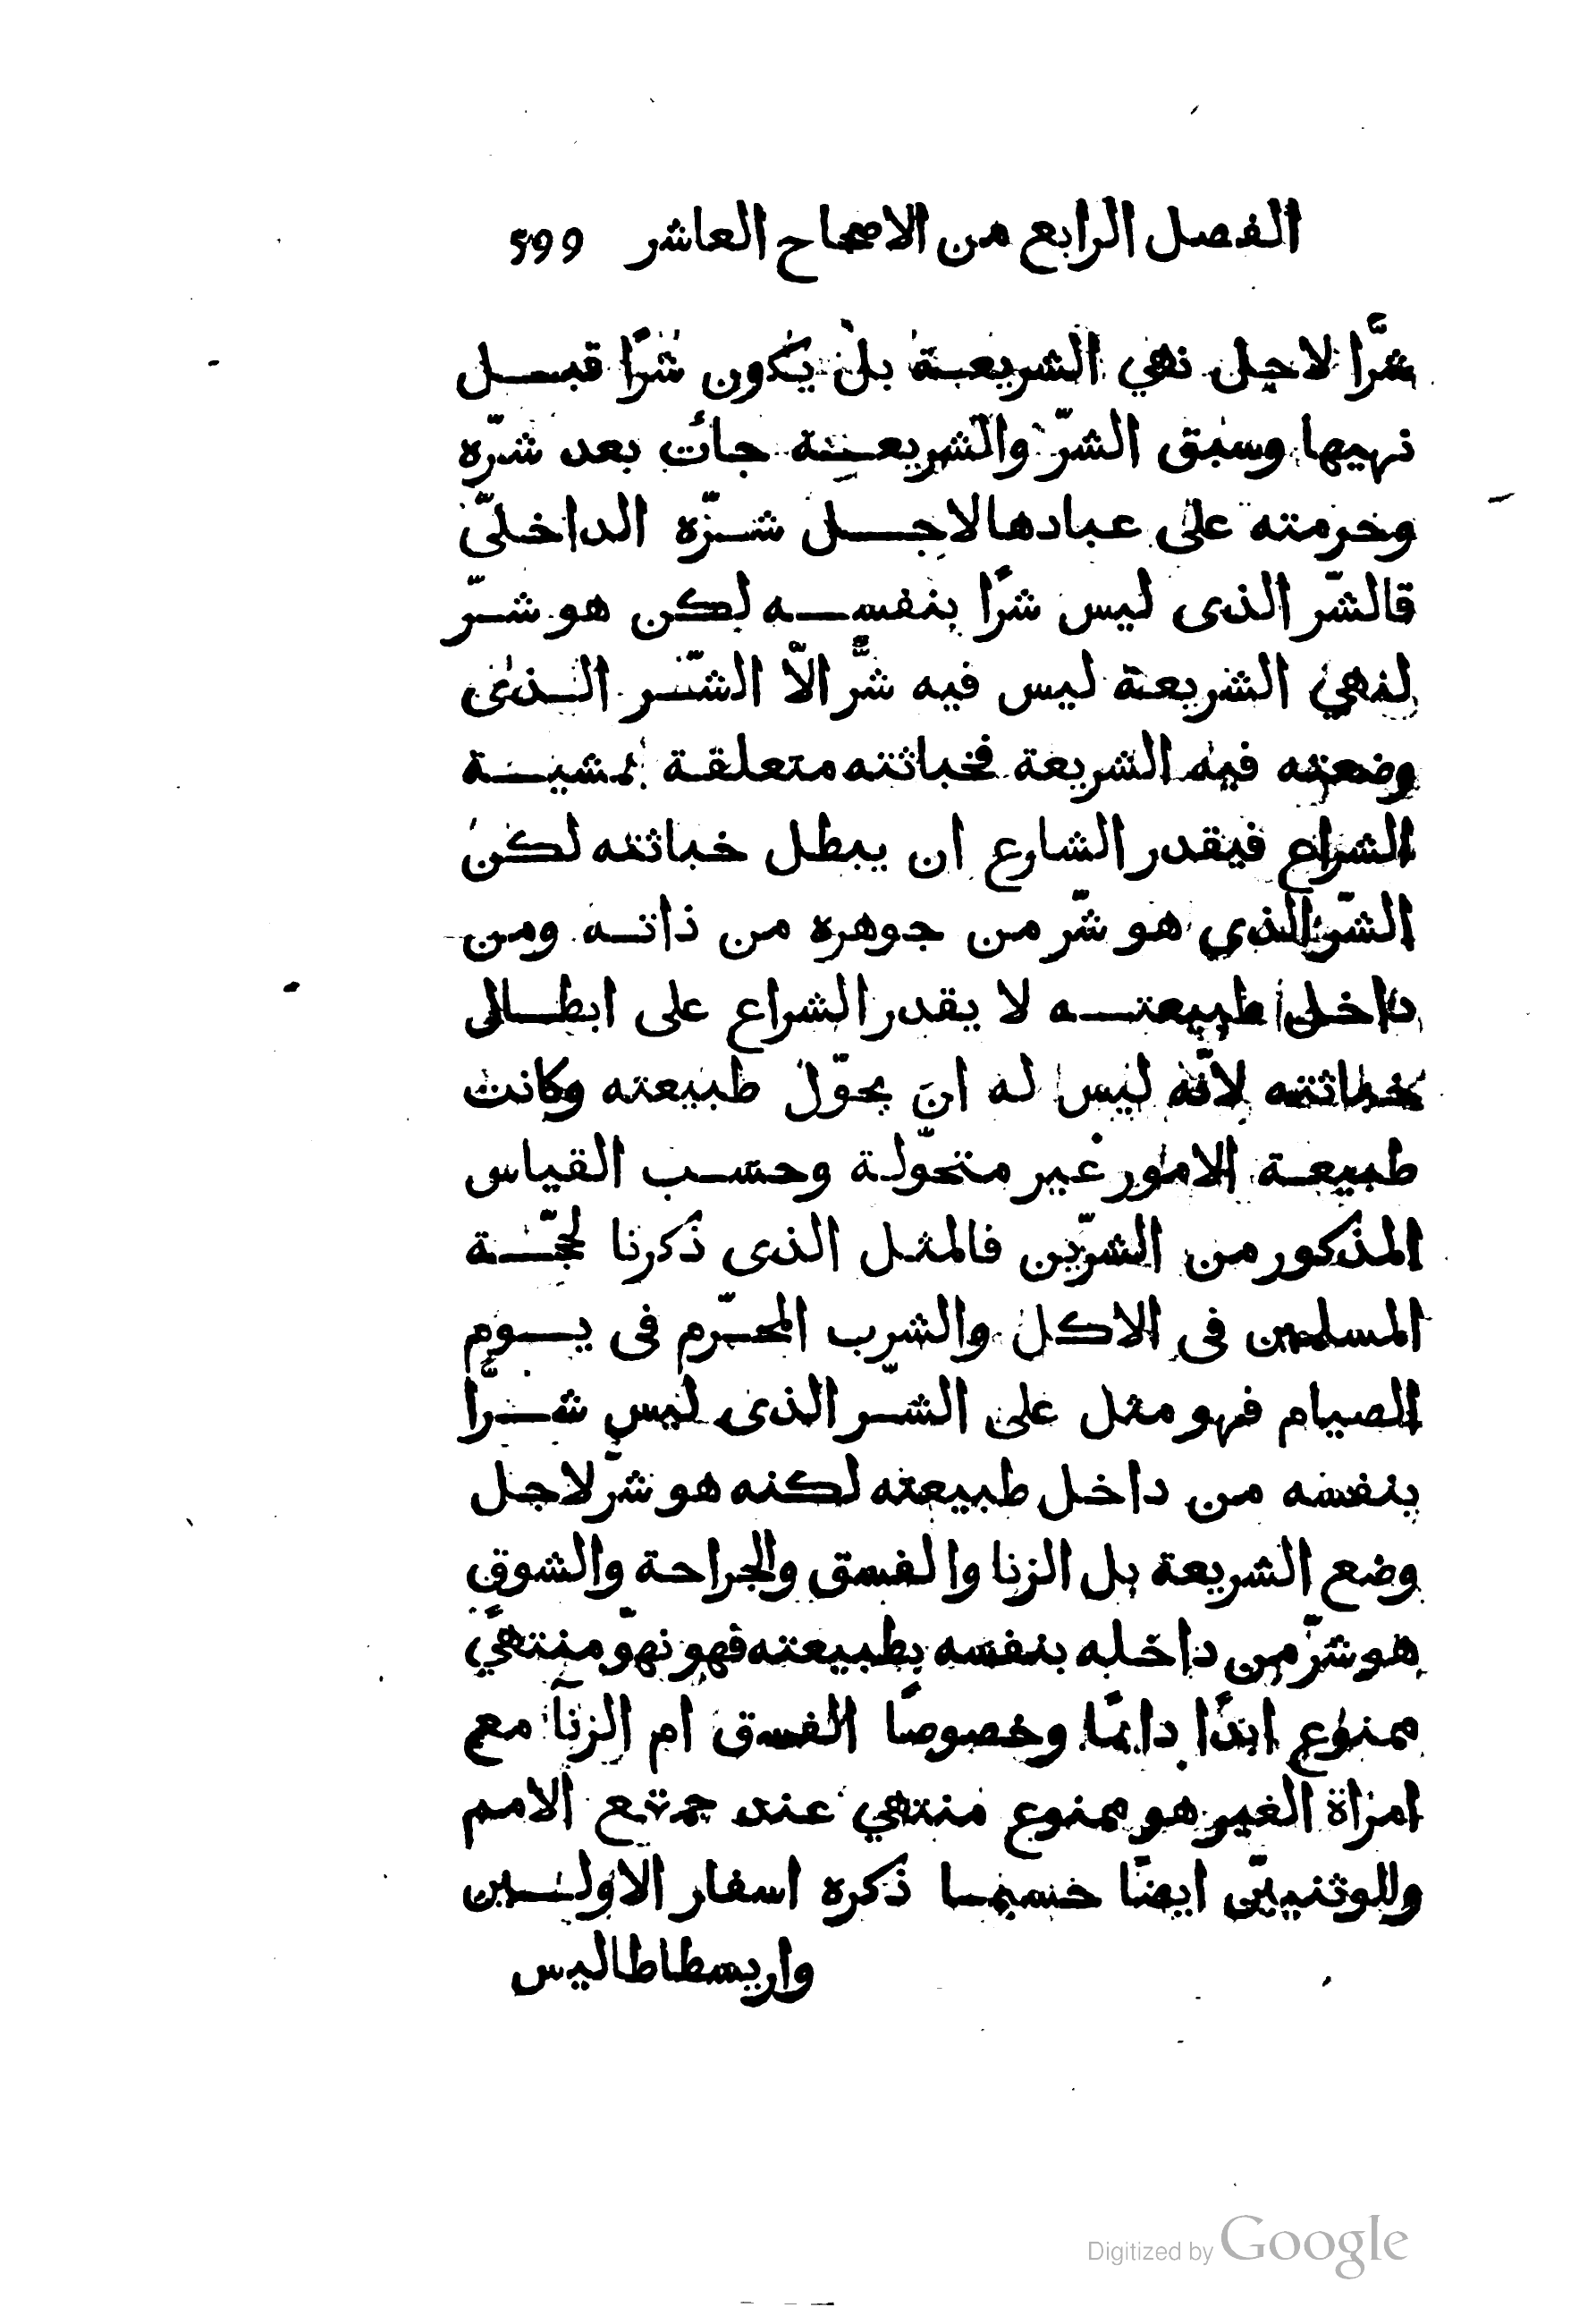 الفصل الرابع من الاصحاح العاشر 599
شرًّا لاجل نهي الشريعة بل يكون شرًا قبل
نهيها وسبق الشرّ والشريعة جائت بعد شرّه
وحرمته على عبادها لاجل شرّه الداخليّ
فالشرّ الذى ليس شرًا بنفسه لكن هو شرّ
لنهي الشريعة ليس فيه شرًّ الّا الشّر الذى
وضعته فيه الشريعة فخباثته متعلقة بمشية
الشراع فيقدر الشارع ان يبطل خباثته لكن
الشرّ الذي هو شّر من جوهره من ذاته ومن
داخل طبيعته لا يقدر الشراع على ابطال
خباثته لانّه ليس له ان يحوّل طبيعته وكانت
طبيعة الامور غير متحوّلة وحسب القياس
المذكور من الشرّين فالمثل الذى ذكرنا لحجّة
المسلمين فى الاكل والشرب المحرّم فى يوم
الصيام فهو مثل على الشّر الذى ليس شرًّا
بنفسه من داخل طبيعته لكنه هو شرّ لاجل
وضع الشريعة بل الزنا والفسق والجراحة والشوق
هو شرّ من داخله بنفسه بطبيعته فهو نهوّ منتهيً
ممنوع ابدًا دايمًا وخصوصًا الفسق ام الزنآ مع
امراة الغير هو ممنوع منتهي عند جميع الامم
وللوثنييّن ايضًا حسبما ذكره اسفار الاولين
واريسطاطاليس
Digitized by Google